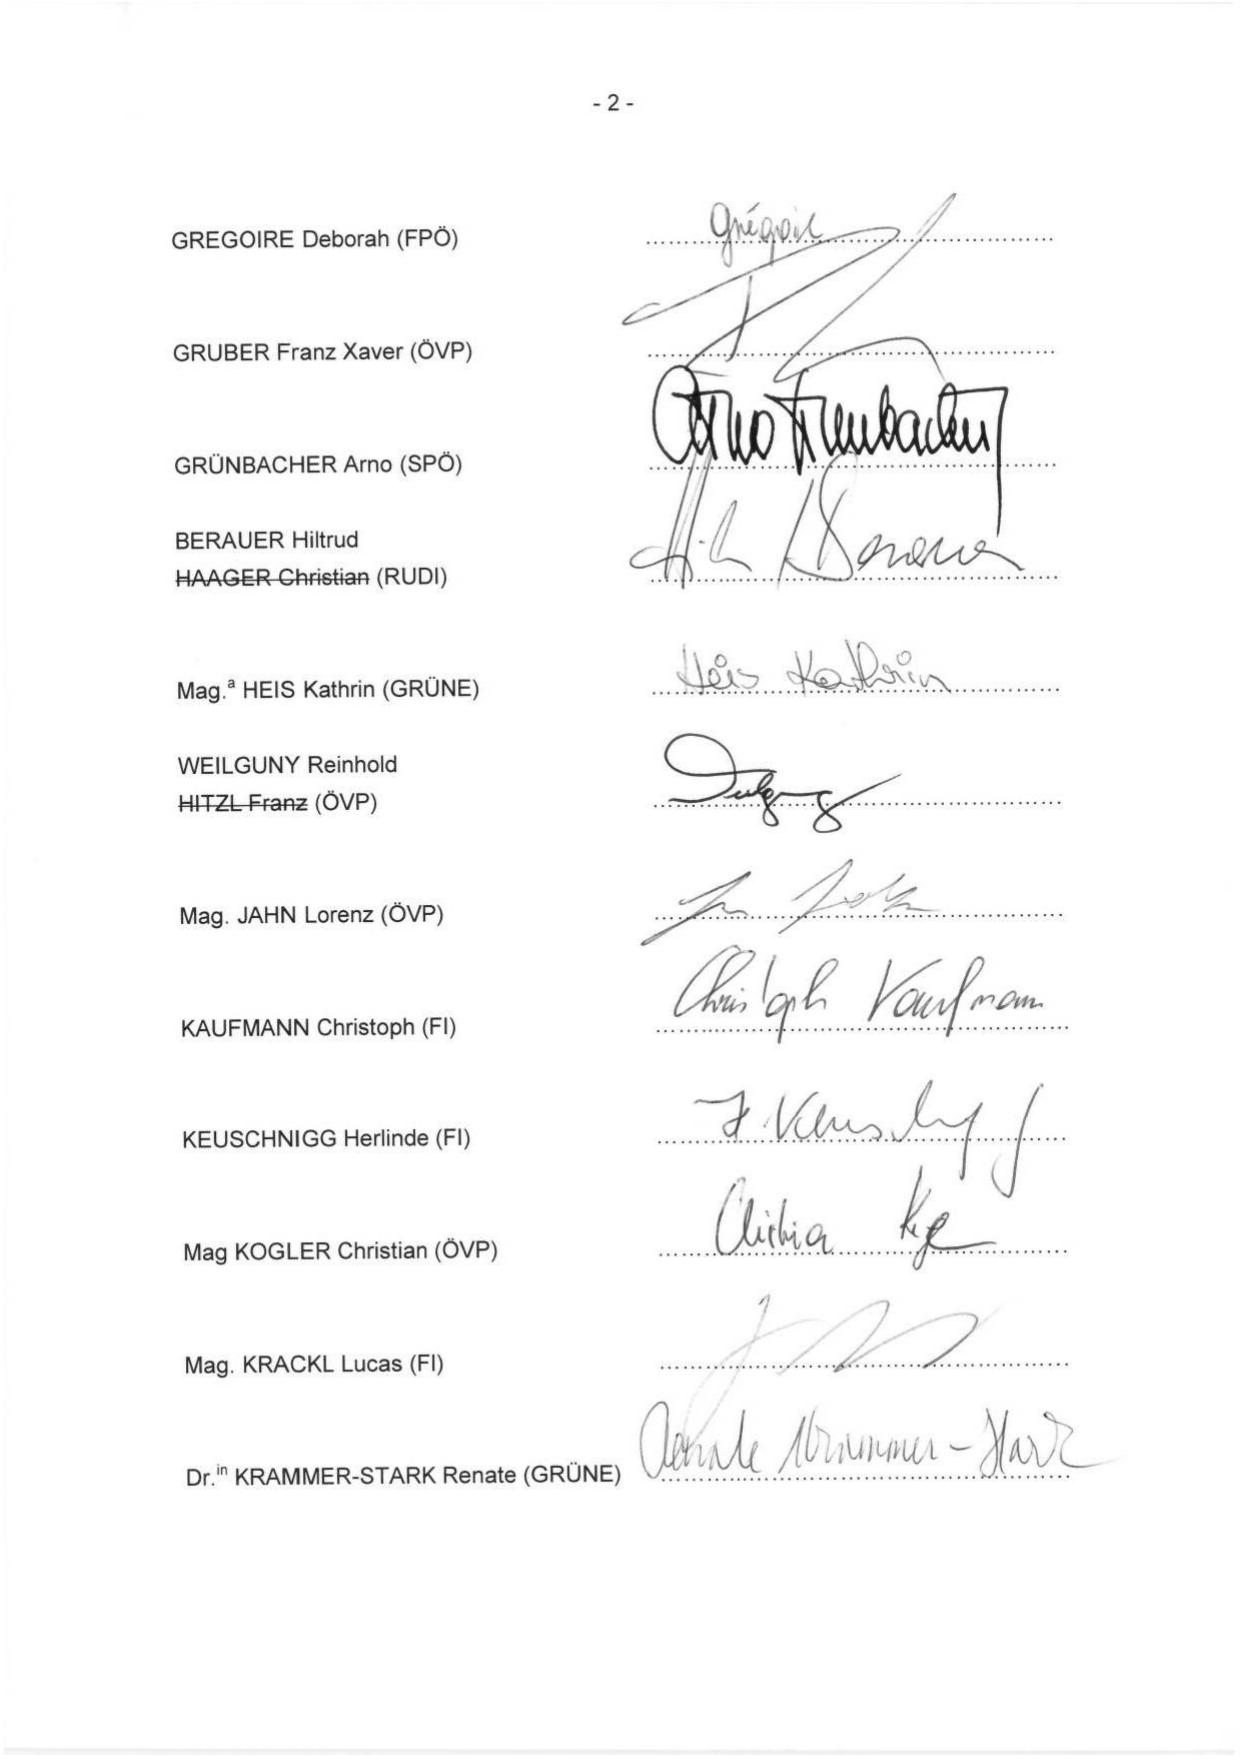 - 2 -
GREGOIRE Deborah (FPÖ)
Grégoire
GRUBER Franz Xaver (ÖVP)
GRÜNBACHER Arno (SPÖ)
Arno Grünbacher
BERAUER Hiltrud
HAAGER Christian (RUDI)
Berauer
Mag.ª HEIS Kathrin (GRÜNE)
Heis Kathrin
WEILGUNY Reinhold
HITZL Franz (ÖVP)
Mag. JAHN Lorenz (ÖVP)
KAUFMANN Christoph (FI)
Christoph Kaufmann
KEUSCHNIGG Herlinde (FI)
Mag KOGLER Christian (ÖVP)
Mag. KRACKL Lucas (FI)
Dr.ⁱⁿ KRAMMER-STARK Renate (GRÜNE)
Renate Krammer-Stark